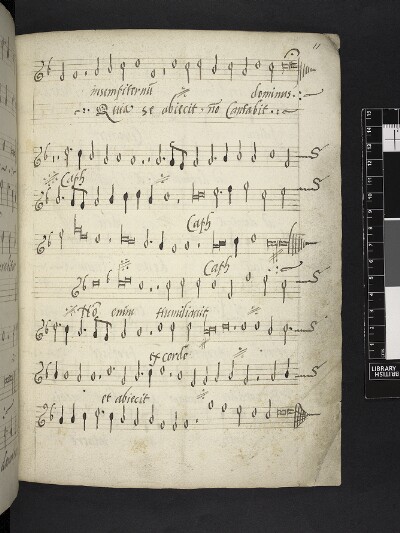 11
dominus
Qua et abiecit non Cantabit
Caph
Caph
Caph
No enim Humiliauit
ex corde
et abiecit
LIBRARY
BRITISH